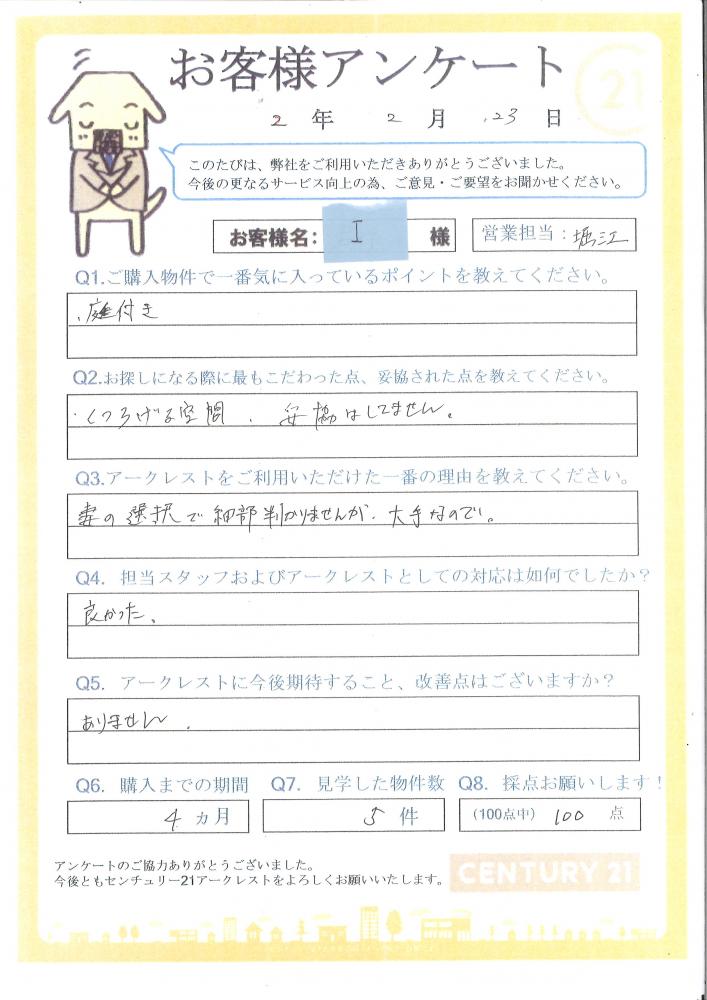 お客様アンケート
21
2 年 2 月 23 日
このたびは、弊社をご利用いただきありがとうございました。
今後の更なるサービス向上の為、ご意見・ご要望をお聞かせください。
お客様名： I 様 営業担当：堀江
Q1.ご購入物件で一番気に入っているポイントを教えてください。
・庭付き
Q2.お探しになる際に最もこだわった点、妥協された点を教えてください。
・くつろげる空間 、妥協はしてません。
Q3.アークレストをご利用いただけた一番の理由を教えてください。
妻の選択で細部判かりませんが、大手なので。
Q4. 担当スタッフおよびアークレストとしての対応は如何でしたか？
良かった。
Q5. アークレストに今後期待すること、改善点はございますか？
ありません 。
Q6. 購入までの期間 Q7. 見学した物件数 Q8. 採点お願いします！
4 ヵ月 5 件 (100点中) 100 点
アンケートのご協力ありがとうございました。
今後ともセンチュリー21アークレストをよろしくお願いいたします。
CENTURY 21